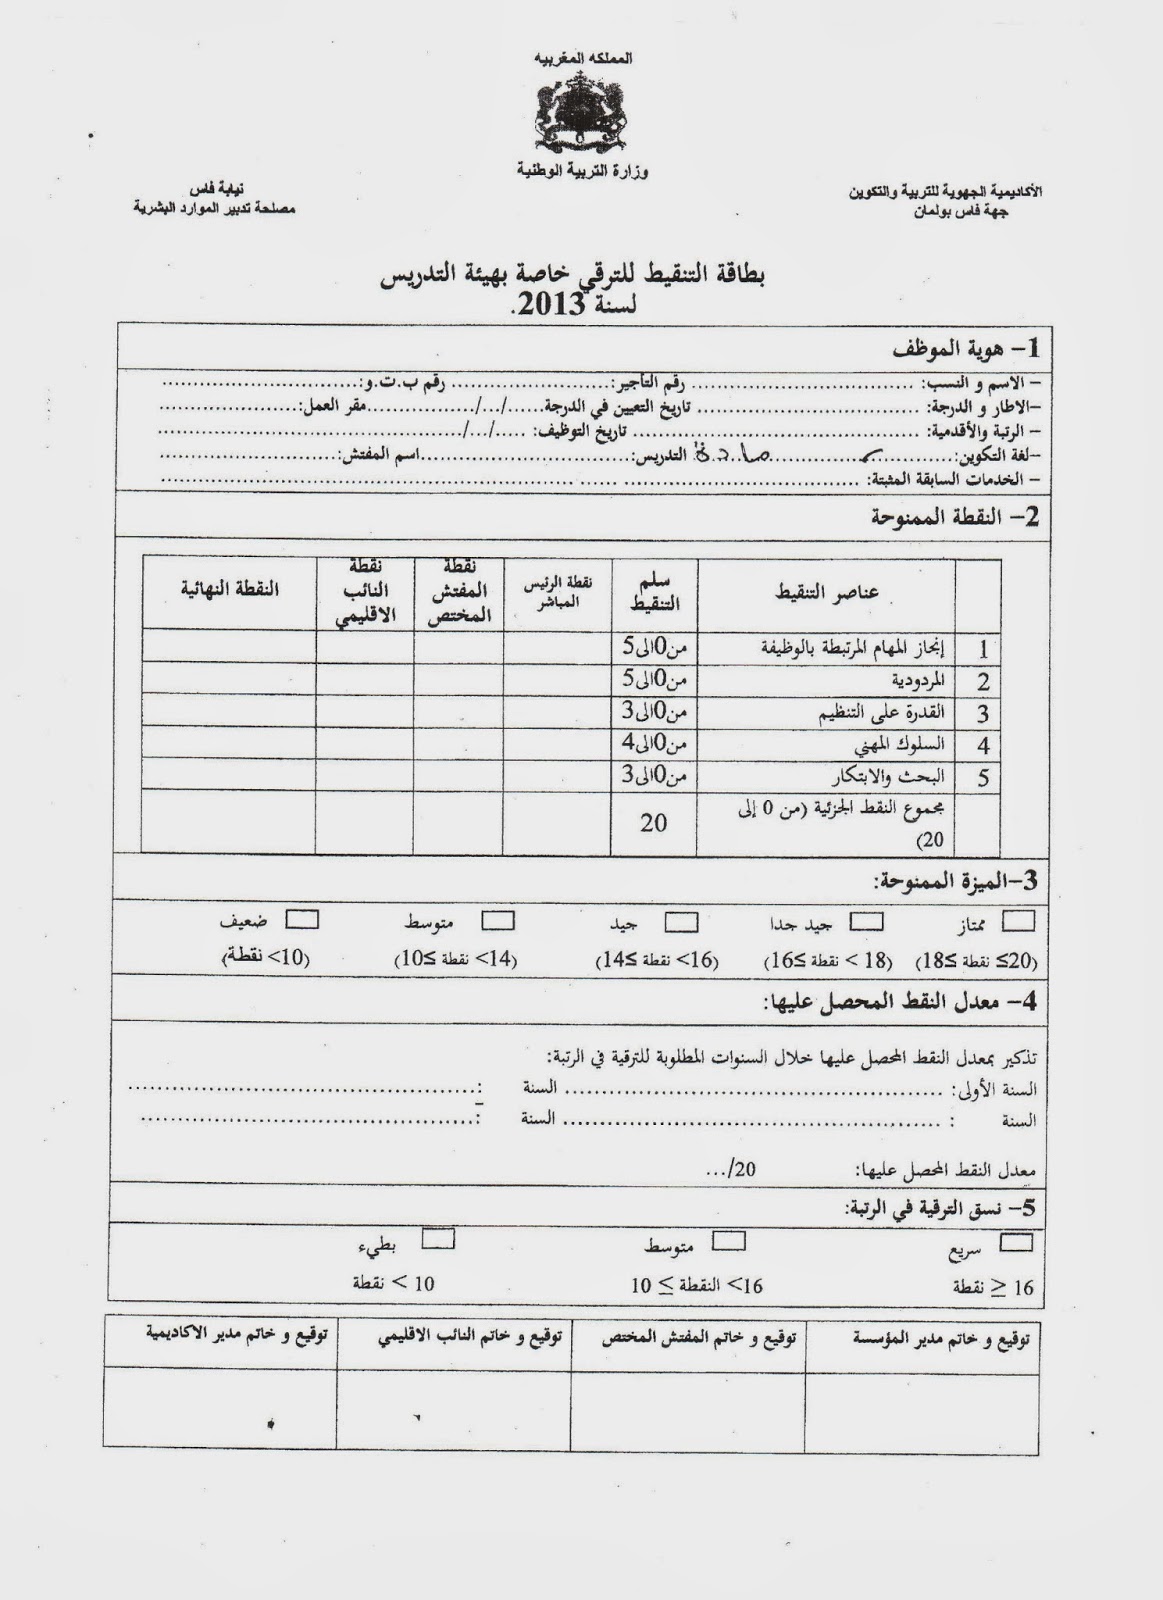 المملكة المغربية
وزارة التربية الوطنية
الأكاديمية الجهوية للتربية والتكوين
جهة فاس بولمان
نيابة فاس
مصلحة تدبير الموارد البشرية
بطاقة التنقيط للترقي خاصة بهيئة التدريس
لسنة 2013.
1- هوية الموظف
- الاسم و النسب: ........................ رقم التأجير:........................ رقم ب.ت.و:........................
-الاطار و الدرجة: ........................ تاريخ التعيين في الدرجة....../.../................مقر العمل:........................
- الرتبة والأقدمية: ........................ تاريخ التوظيف: ...../.../........................
-لغة التكوين:........................مادة التدريس:........................اسم المفتش:........................
- الخدمات السابقة المثبتة: ........................
2- النقطة الممنوحة
عناصر التنقيط سلم التنقيط نقطة الرئيس المباشر نقطة المفتش المختص نقطة النائب الاقليمي النقطة النهائية
1 إنجاز المهام المرتبطة بالوظيفة من0الى5
2 المردودية من0الى5
3 القدرة على التنظيم من0الى3
4 السلوك المهني من0الى4
5 البحث والابتكار من0الى3
مجموع النقط الجزئية (من 0 إلى 20) 20
3-الميزة الممنوحة:
ممتاز جيد جدا جيد متوسط ضعيف
(20≥ نقطة ≥18) (18 > نقطة ≥16) (16> نقطة ≥14) (14> نقطة ≥10) (10> نقطة)
4- معدل النقط المحصل عليها:
تذكير بمعدل النقط المحصل عليها خلال السنوات المطلوبة للترقية في الرتبة:
السنة الأولى: ........................ السنة :........................
السنة : ........................ السنة :........................
معدل النقط المحصل عليها: 20/...
5- نسق الترقية في الرتبة:
سريع متوسط بطيء
16 ≤ نقطة 16> النقطة ≥ 10 10 > نقطة
توقيع و خاتم مدير المؤسسة توقيع و خاتم المفتش المختص توقيع و خاتم النائب الاقليمي توقيع و خاتم مدير الاكاديمية